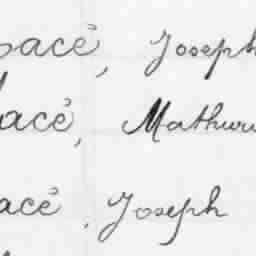 pacé, Joseph
acé, Mathur
acé, Joseph